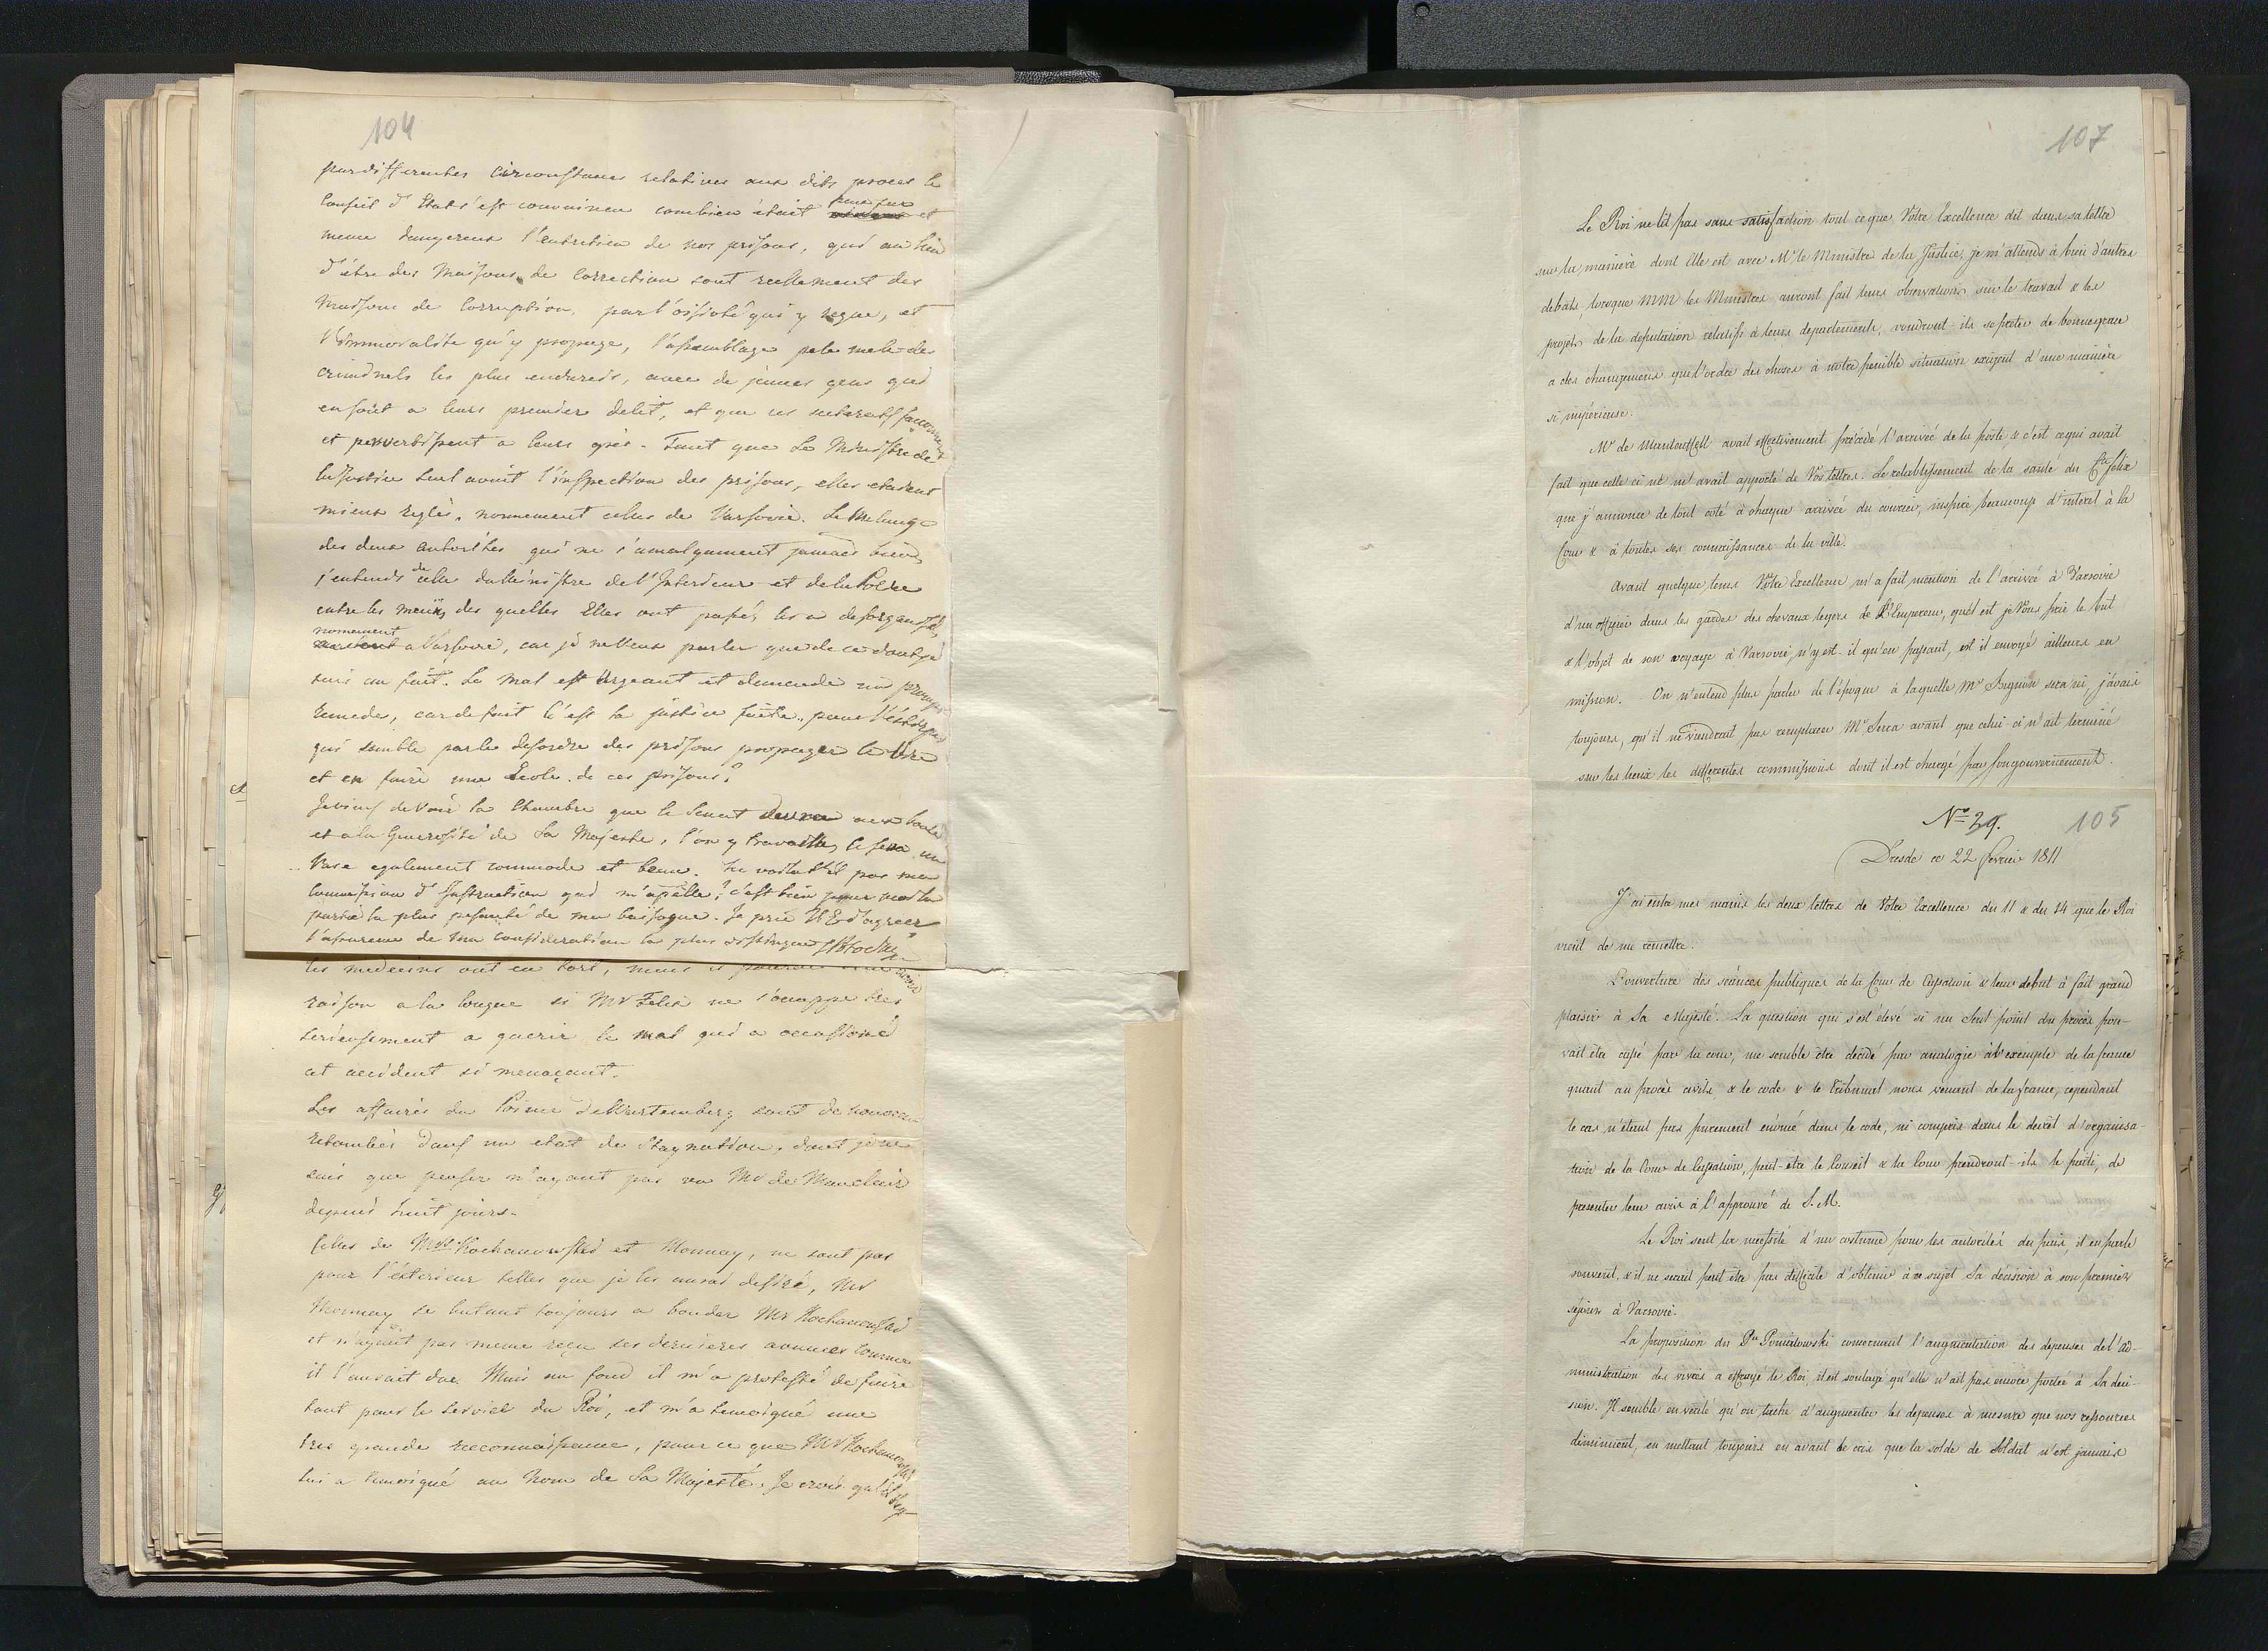 104
par differentes circonstances relatives aux dits proces le
Conseil d'Etat s'est convaincu combien étoit et
meme dangereux l'entretien de nos prisons, qui au lieu
d'être des Maisons de Correction sont reellement des
Maisons de Corruption, par l'oisiveté qui y regne, et
l'immoralité qu'y propage, l'assemblage pele mele des
criminels les plus endurcis, avec de jeunes gens qui
en sont a leurs premiers delit, et que ces scelerats façonnent
et pervertissent a leurs gré. Tant que Le Ministre de
la Justice seul avoit l'inspection des prisons, elles etaient
mieux reglés, nommement celles de Varsovie. Le Melange
des deux autorités qui ne s'amalgament jamais bien,
j'entends de celle du Ministre de l'Interieur et de la Police
entre les mains des quelles Elles ont passé, les a desorganisés,
nomement
a Varsovie, car je ne veux parler que de ce dont je
suis au fait. Le mal est urgeant et demande un prompt
remede, car de fait c'est la justice faite pour
qui semble par le desordre des prisons propager le Vice
et en faire une Ecole de ces prisons.
Je viens de voir la Chambre que le Senat devra aux bontés
et a la Generosité de Sa Majesté, l'on y travaille, ce sera un
Vase egalement commode et beau. Ne voilat'il pas ma
Commission d'Instruction qui m'apelle? c'est bien pour moi la
partie la plus pesante de ma besogne. Je prie V E d'agreer
l'assurance de ma consideration la plus distinguée
les medecins ont eu tort, mais
raison a la longue si Mr Felix ne s'occuppe tres
serieusement a guerir le mal qui a occasioné
cet accident si menaçant.
Les affaires du Prince de Wurtemberg sont de nouveau
retombées dans un etat de Stagnation, dont je ne
sais que penser n'ayant pas vu Mr de Mauclair
depuis huit jours.
Celles de Mrs Kochanowski et Monnay, ne sont pas
pour l'exterieur telles que je les aurai desiré, Mr
Monnay se butant toujours a bouder Mr Kochanowski
et n'ayant pas meme reçu ses dernieres avances comme
il l'auroit due. Mais au fond il m'a protesté de faire
tout pour le service du Roi, et m'a temoigné une
tres grande reconnaissance, pour ce que Mr Kochanowski
lui a temoigné au nom de Sa Majesté. Je crois qu'il
107
Le Roi ne lit pas sans satisfaction tout ce que Votre Excellence dit dans sa lettre
sur la maniere dont Elle est avec Mr le Ministre de la Justice, je m'attends à bien d'autres
debats lorsque MM les Ministres auront fait leurs observations sur le travail & les
projets de la deputation relatifs à leurs departements, voudront-ils se preter de bonne grace
a des changemens que l'ordre des choses à notre penible situation exigent d'une maniere
si impérieuse.
Mr de Manteuffell avait effectivement précédé l'arrivée de la poste & c'est ce qui avait
fait que celle ci ne m'avait apporté de Vos lettres. Le retablissement de la santé du Cte Felix
que j'annonce de tout coté à chaque arrivée du courier, inspire beaucoup d'interet à la
Cour & à toutes ses connaissances de la ville.
Avant quelque tems Votre Excellence m'a fait mention de l'arrivée à Varsovie
d'un officier dans les gardes des chevaux legers de L'Empereur, quel est je Vous prie le but
& l'objet de son voyage à Varsovie, n'y est-il qu'en passant, est il envoyé ailleurs en
mission. On n'entend plus parler de l'époque à laquelle Mr Bignon sera ici, j'avais
toujours, qu'il ne viendrait pas remplacer Mr Serra avant que celui-ci n'ait terminé
sur les lieux les differentes commissions dont il est chargé par son gouvernement.
No 29.
105
Dresde ce 22 fevrier 1811
J'ai entre mes mains les deux lettres de Votre Excellence du 11 & du 14 que le Roi
vient de me remettre.
L'ouverture des séances publiques de la Cour de Cassation & leur debut à fait grand
plaisir à Sa Majesté. La question qui s'est élevé si un seul point du procès pou-
vait être cassé par la cour, me semble être decidé par analogie à l'exemple de la france
quant au procès civils & le code & le tribunal nous venant de la france, cependant
le cas n'étant pas purement énoncé dans le code, ni compris dans le decret d'organisa-
tion de la Cour de Cassation, peut-être le Conseil & la Cour prendront-ils le parti, de
presenter leur avis à l'approuvé de S. M.
Le Roi sent la necessité d'un costume pour les autorités du païs, il en parle
souvent, & il ne serait peut être pas difficile d'obtenir à ce sujet Sa décision à son premier
séjour à Varsovie.
La proposition du Pce Poniatowski concernant l'augmentation des depenses de l'ad-
ministration des vivres a effrayé le Roi, il est soulagé qu'elle n'ait pas encore portée à Sa deci-
sion. Il semble en verité qu'on tache d'augmenter les depenses à mesure que nos ressources
diminuent, en mettant toujours en avant le cas que la solde de Soldat n'est jamais